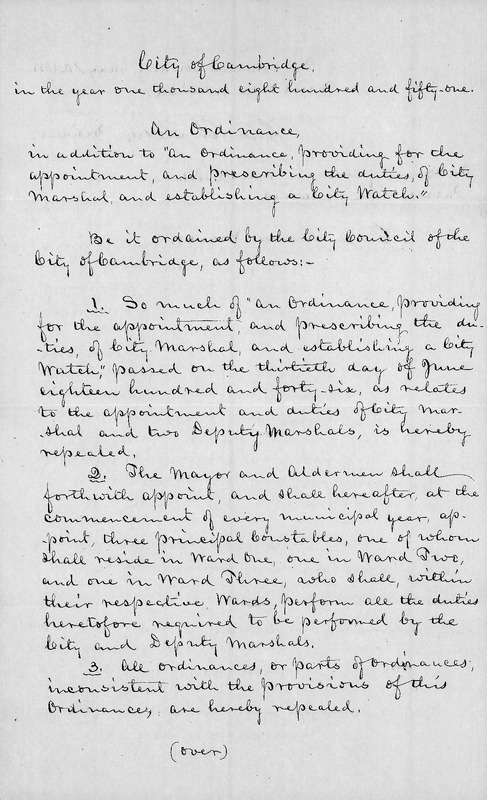 City of Cambridge,
in the year one thousand eight hundred and fifty-one.
An Ordinance,
in addition to "An Ordinance, providing for the
appointment, and prescribing the duties, of City
Marshal, and establishing a City Watch."
Be it ordained by the City Council of the
City of Cambridge, as follows:-
1. So much of "An Ordinance, providing
for the appointment, and prescribing the du-
-ties, of City Marshal, and establishing a City
Watch," passed on the thirtieth day of June
eighteen hundred and forty-six, as relates
to the appointment and duties of City Mar-
-shal and two Deputy Marshals, is hereby
repealed.
2. The Mayor and Aldermen shall
forthwith appoint, and shall hereafter, at the
commencement of every municipal year, ap-
-point, three principal Constables, one of whom
shall reside in Ward One, one in Ward Two,
and one in Ward Three, who shall, within
their respective Wards, perform all the duties
heretofore required to be performed by the
City and Deputy Marshals.
3. All ordinances, or parts of ordinances,
inconsistent with the provisions of this
Ordinance, are hereby repealed.
(over)